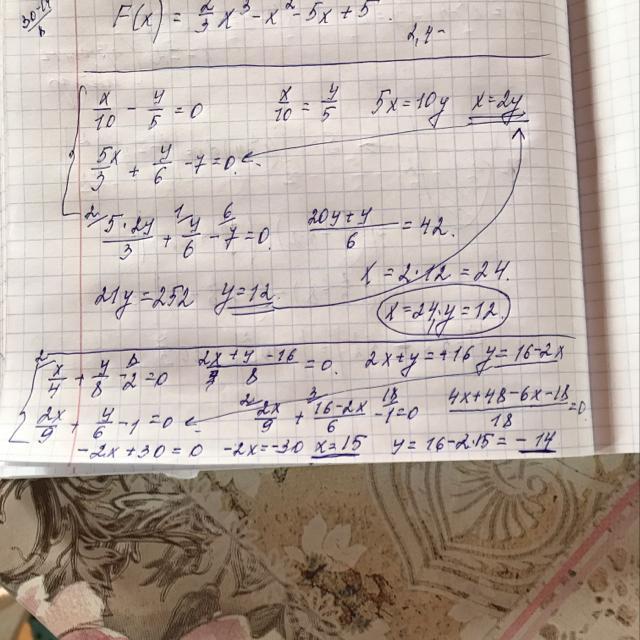 30-11/б F(x) = 2/3 x³ - x² - 5x + 5.
2,4-
x/10 - y/5 = 0 x/10 = y/5 5x = 10y x = 2y
5x/3 + y/6 - 7 = 0.
5·2y/3 + y/6 - 7 = 0. (20y + y)/6 = 42.
x = 2·12 = 24.
21y = 252 y = 12.
x = 24; y = 12.
x/4 + y/8 - 2 = 0 (2x + y - 16)/8 = 0. 2x + y = +16 y = 16 - 2x
2x/9 + y/6 - 1 = 0 2x/9 + (16 - 2x)/6 - 1 = 0 (4x + 48 - 6x - 18)/18 = 0
-2x + 30 = 0 -2x = -30 x = 15 y = 16 - 2·15 = -14